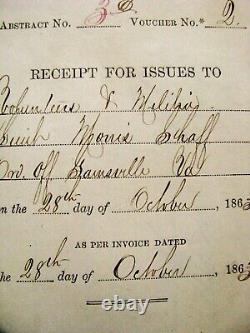 Abstract No. 3d Voucher No.* 2.
RECEIPT FOR ISSUES TO
Volunteers & Militia
Morris Schaff
Ord. Off
on the 28th day of October 1863
AS PER INVOICE DATED
the 28th day of October, 1863